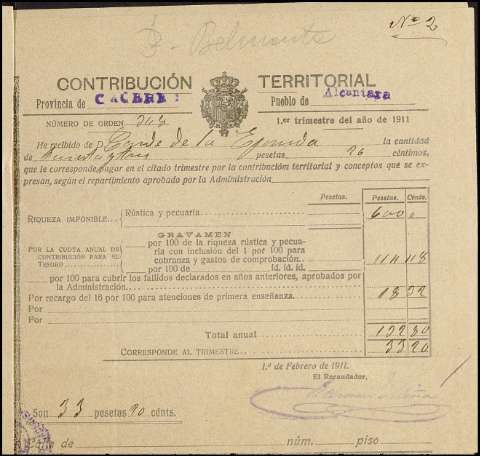 Nº 2
3 - Belmonte
CONTRIBUCIÓN TERRITORIAL
Provincia de CACERES Pueblo de Alcantara
NÚMERO DE ORDEN 1.er trimestre del año de 1911
He recibido de Conde de la la cantidad
de pesetas céntimos,
que le corresponde pagar en el citado trimestre por la contribución territorial y conceptos que se ex-
presan, según el repartimiento aprobado por la Administración
Pesetas. Pesetas. Cents.
RIQUEZA IMPONIBLE... Rústica y pecuaria 600
GRAVAMEN
POR LA CUOTA ANUAL DE CONTRIBUCIÓN PARA EL TESORO
por 100 de la riqueza rústica y pecua-
ria con inclusión del 1 por 100 para
cobranza y gastos de comprobación. 114 48
por 100 de íd. íd. íd.
por 100 para cubrir los fallidos declarados en años anteriores, aprobados por
la Administración
Por recargo del 16 por 100 para atenciones de primera enseñanza. 18 32
Por
Por
Total anual 132 80
CORRESPONDE AL TRIMESTRE 33 20
1.º de Febrero de 1911.
El Recaudador,
Son 33 pesetas 20 cénts.
Calle de núm. piso